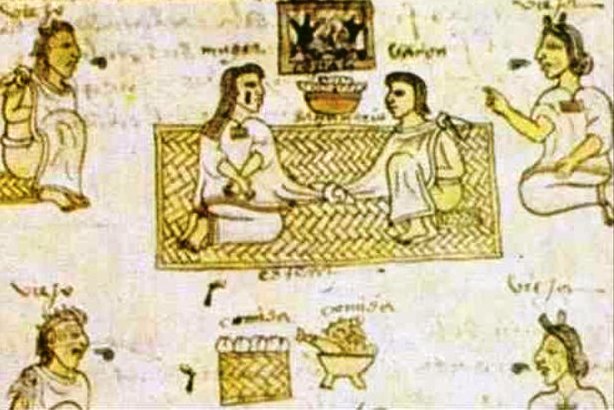 viejo
vieja
muger
estera
viejo
vieja
comida
comida